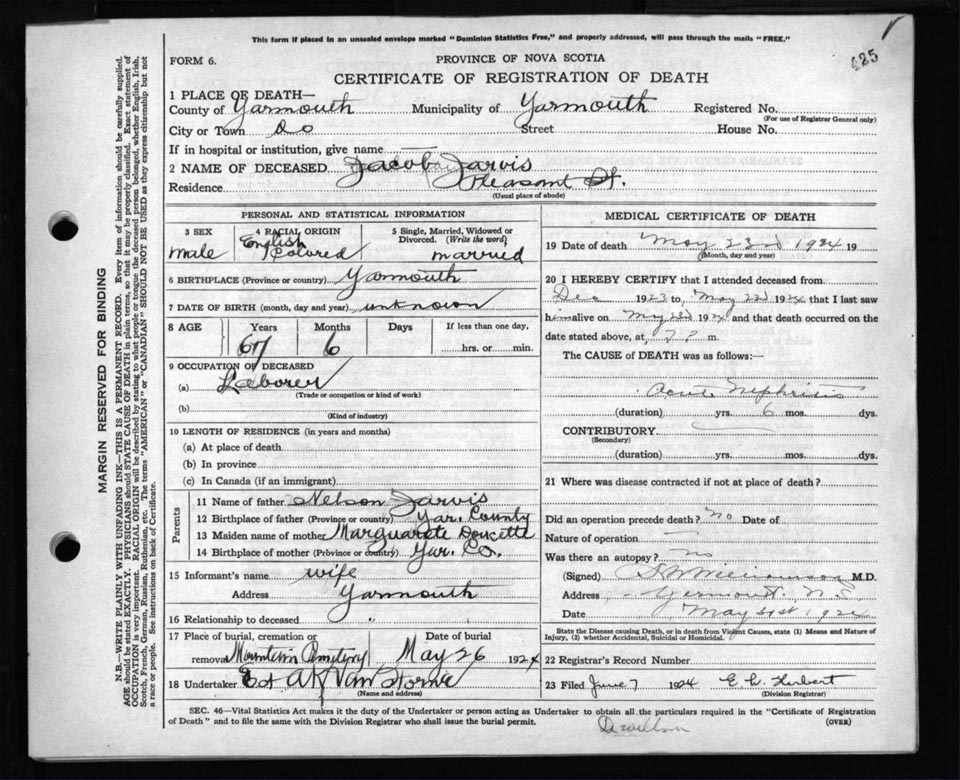 This form if placed in an unsealed envelope marked "Dominion Statistics Free," and properly addressed, will pass through the mails "FREE."
485
FORM 6.
PROVINCE OF NOVA SCOTIA
CERTIFICATE OF REGISTRATION OF DEATH
1 PLACE OF DEATH—
County of Yarmouth Municipality of Yarmouth Registered No.
(For use of Registrar General only)
City or Town Do Street House No.
If in hospital or institution, give name —
2 NAME OF DECEASED Jacob Jarvis
Residence Pleasant St.
(Usual place of abode)
PERSONAL AND STATISTICAL INFORMATION
3 SEX 4 RACIAL ORIGIN 5 Single, Married, Widowed or Divorced. (Write the word)
male English Colored married
6 BIRTHPLACE (Province or country) Yarmouth
7 DATE OF BIRTH (month, day and year) unknown
8 AGE Years Months Days If less than one day,
67 6 hrs. or min.
9 OCCUPATION OF DECEASED
(a) Laborer
(Trade or occupation or kind of work)
(b)
(Kind of industry)
10 LENGTH OF RESIDENCE (in years and months)
(a) At place of death
(b) In province
(c) In Canada (if an immigrant)
Parents
11 Name of father Nelson Jarvis
12 Birthplace of father (Province or country) Yar. County
13 Maiden name of mother Marguarete Doucette
14 Birthplace of mother (Province or country) Yar. Co.
15 Informant's name wife
Address Yarmouth
16 Relationship to deceased
17 Place of burial, cremation or removal Mountain Cemetery Date of burial May 26 1924
18 Undertaker Est AK Van Horne
(Name and address)
MEDICAL CERTIFICATE OF DEATH
19 Date of death May 23rd 1924 19
(Month, day and year)
20 I HEREBY CERTIFY that I attended deceased from
Dec 1923 to May 23d 1924 that I last saw
him alive on May 23d 1924 and that death occurred on the
date stated above, at m.
The CAUSE of DEATH was as follows:—
Acute Nephritis
(duration) yrs. 6 mos. dys.
CONTRIBUTORY
(Secondary)
(duration) yrs. mos. dys.
21 Where was disease contracted if not at place of death?
Did an operation precede death? No Date of
Nature of operation —
Was there an autopsy? No
(Signed) M.D.
Address Yarmouth, N.S.
Date May 31st 1924
State the Disease causing Death, or in death from Violent Causes, state (1) Means and Nature of
Injury, (2) whether Accidental, Suicidal or Homicidal.
22 Registrar's Record Number
23 Filed June 7 1924 E. C. Herbert
(Division Registrar)
SEC. 46—Vital Statistics Act makes it the duty of the Undertaker or person acting as Undertaker to obtain all the particulars required in the "Certificate of Registration
of Death" and to file the same with the Division Registrar who shall issue the burial permit. (OVER)
MARGIN RESERVED FOR BINDING
N.B.—WRITE PLAINLY WITH UNFADING INK—THIS IS A PERMANENT RECORD. Every item of information should be carefully supplied.
AGE should be stated EXACTLY. PHYSICIANS should STATE CAUSE OF DEATH in plain terms, so that it may be properly classified. Exact statement of
OCCUPATION is very important. RACIAL ORIGIN will be described by stating to what people or tongue the deceased person belonged, whether English, Irish,
Scotch, French, German, Russian, Ruthenian, etc. The terms "AMERICAN" or "CANADIAN" SHOULD NOT BE USED as they express citizenship but not
a race or people. See instructions on back of Certificate.